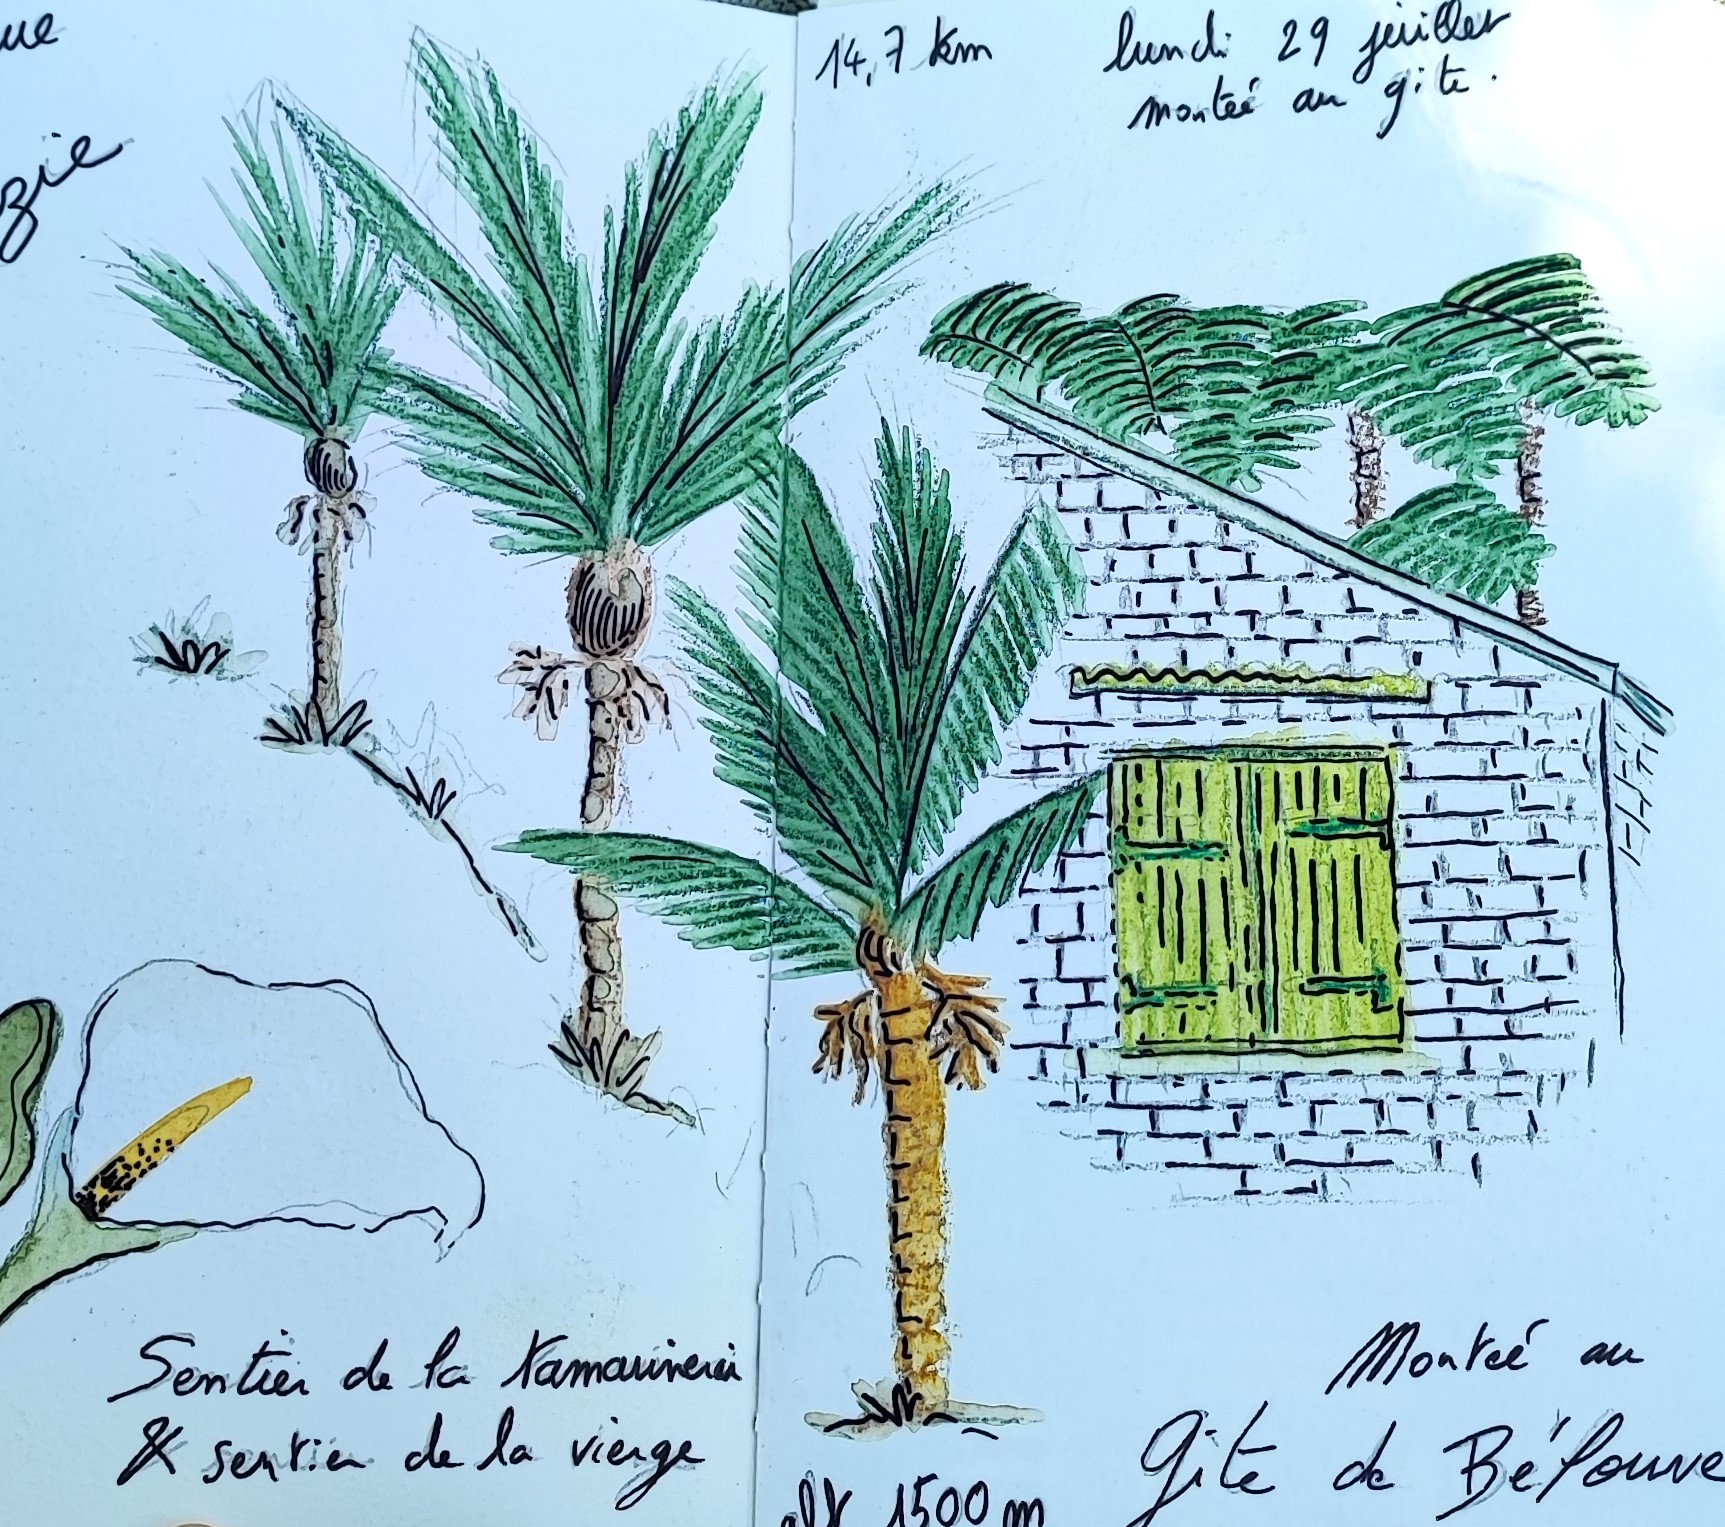 14,7 km
lundi 29 juillet
montée au gîte.
Sentier de la tamarineraie
& sentier de la vierge
Montée au
Gîte de Bélouve
alt 1500 m